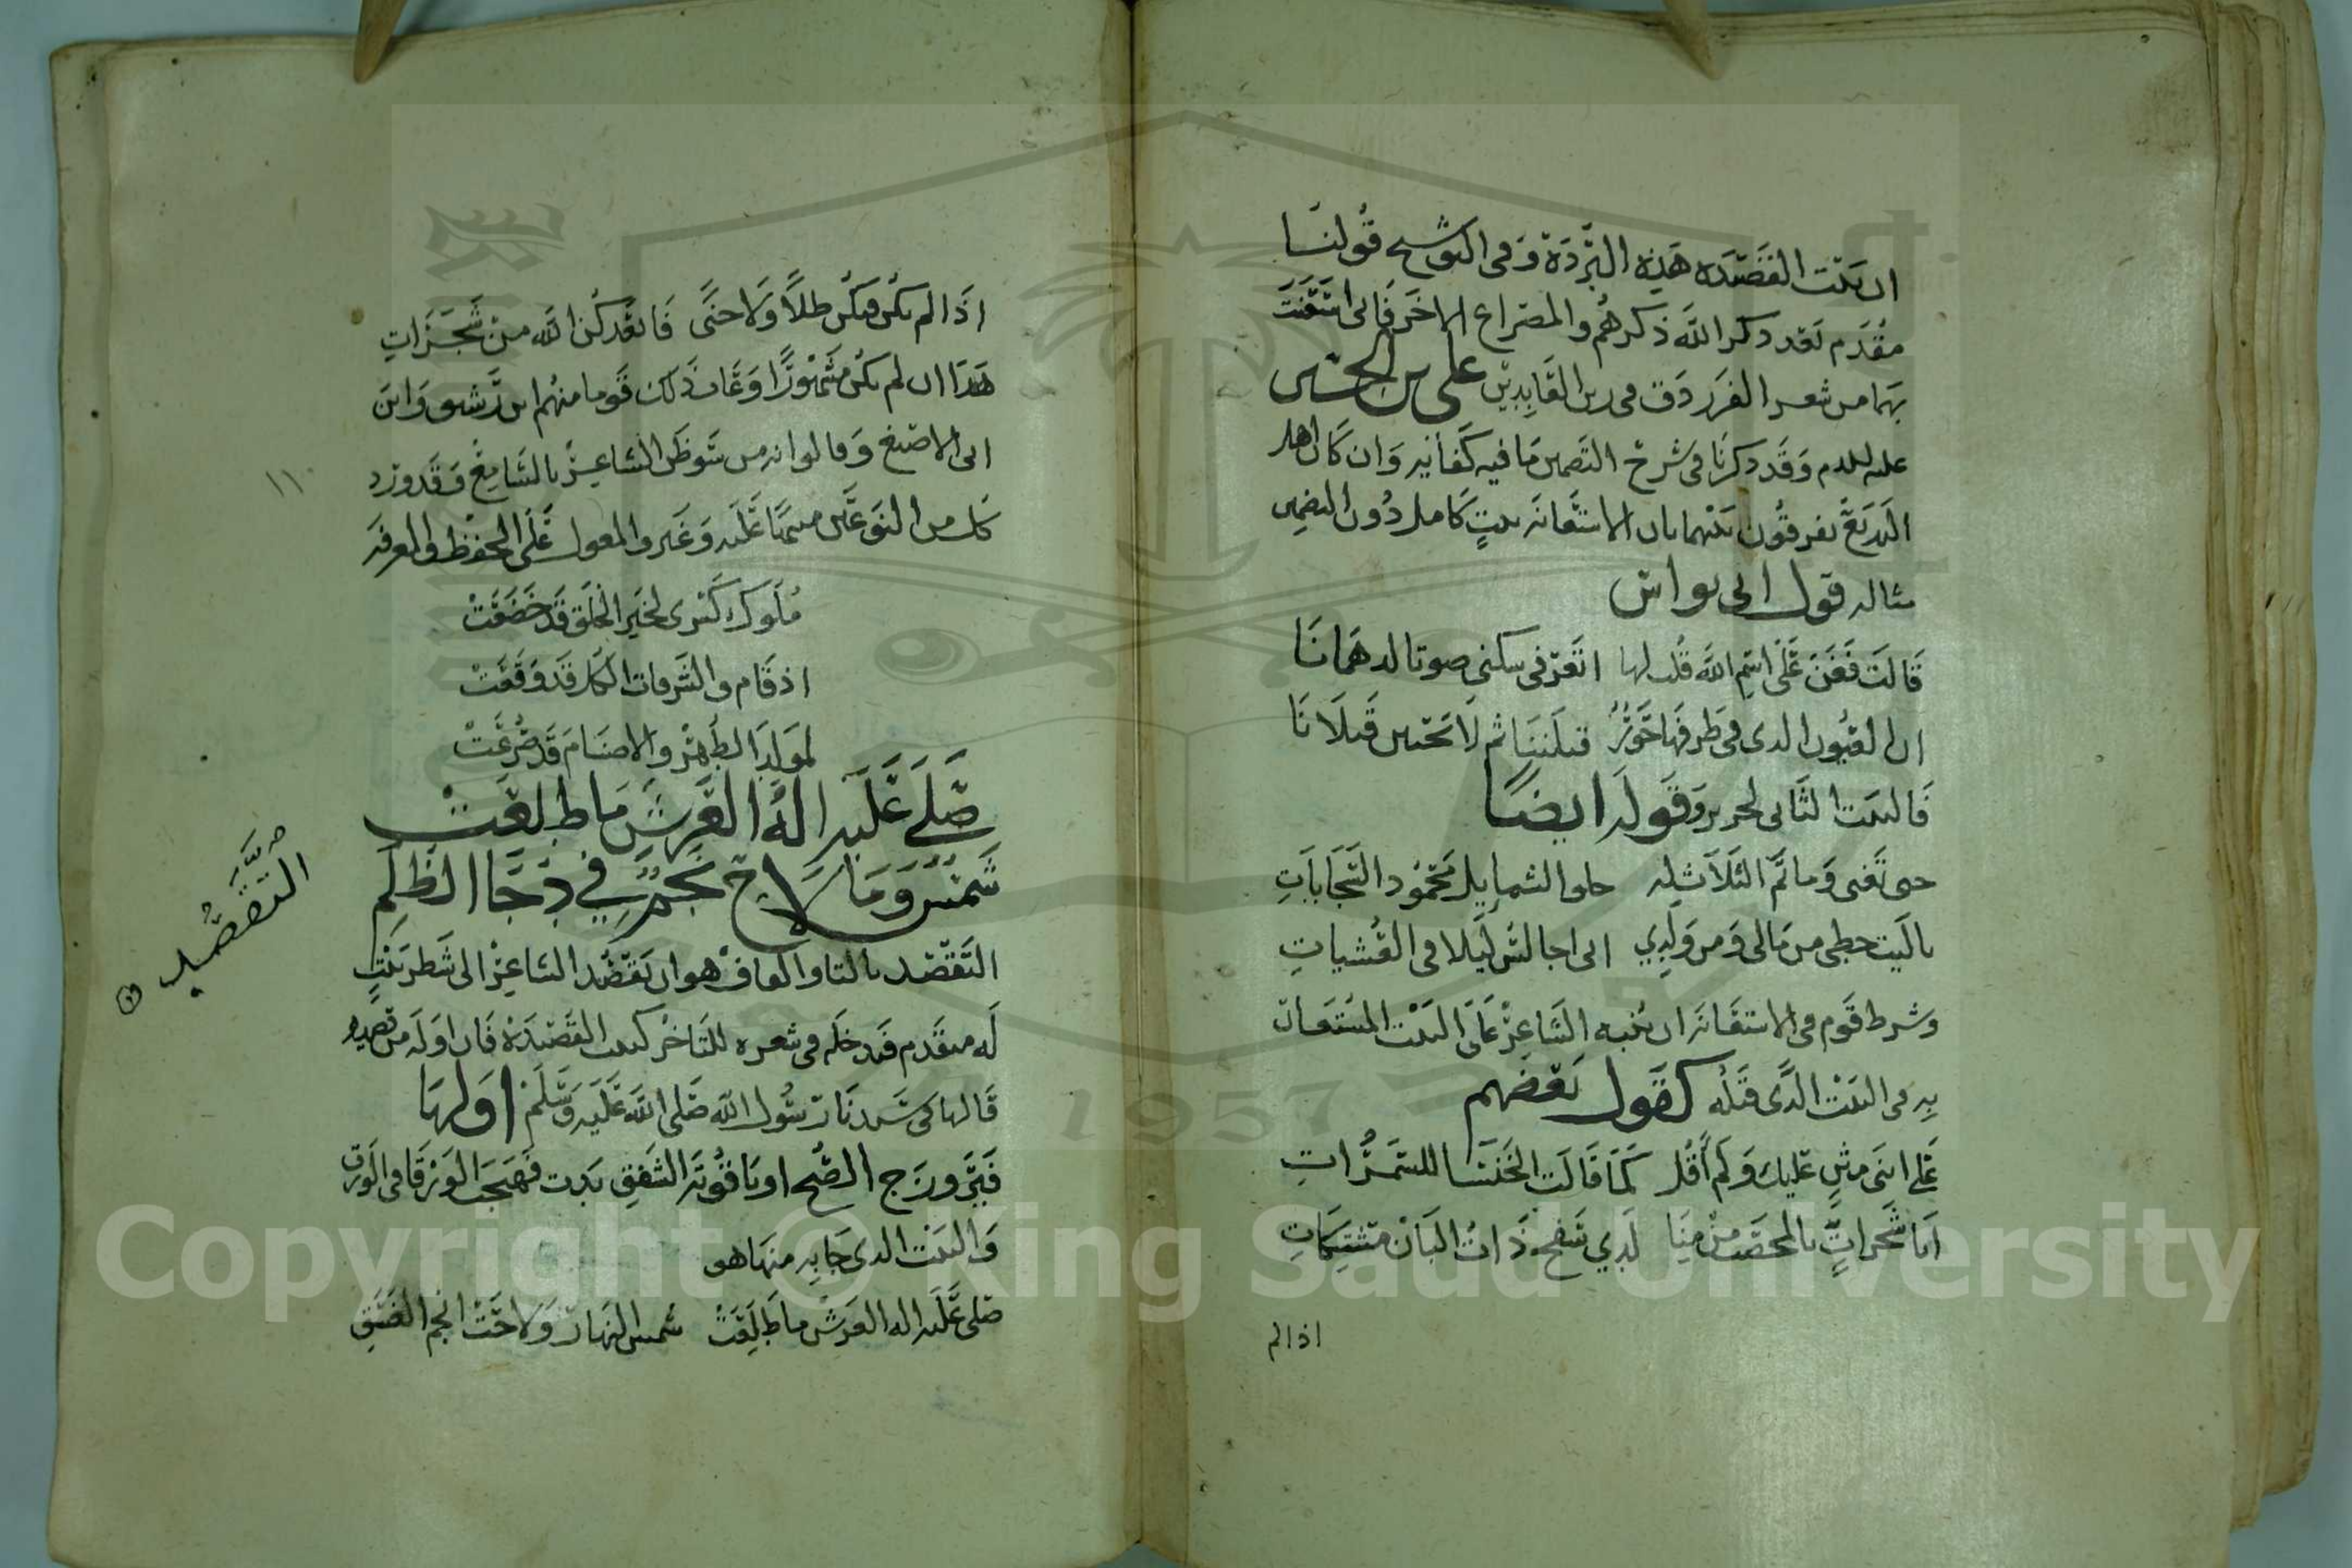 ان بيت القصيده هذه البردة وفي التوشيح قولنا
مقدم بعد ذكر الله ذكرهم والمصراع الاخر فاني استعنت
بهما من شعر الفرزدق في زين العابدين علي بن الحسين
عليه السلام وقد ذكرنا في شرح التضمين ما فيه كفاية وان كان اهل
البديع يفرقون بينهما بان الاستعانة ببيت كامل دون التضمين
مثاله قول ابي نواس
قالت فغن على اسم الله قلت لها اتعزفي سكني صوتا له همانا
ان العيون الذي في طرفها حور قتلننا ثم لا تحيين قتلانا
فالبيت الثاني لجرير وقوله ايضا
حتى تغنى وما تم الثلاث له حلو الشمايل محمود السجابات
ياليت حظي من مالي ومن ولدي اني اجالس ليلا في العشيات
وشرط قوم في الاستعانة ان ينبه الشاعر على البيت المستعان
به في البيت الذي قبله كقول بعضهم
على انني مثن عليك ولم اقل كما قالت الخنسا للسمرات
ايا شجرات بالمحصب من منا لدي سفح ذات البان مشتبكات
اذا لم
اذا لم يكن فيكن ظلا ولا جنى فابعدكن الله من شجرات
هذا ان لم يكن مشهورا وعاب ذلك قوما منهم ابن رشيق وابن
ابي الاصبع وقالوا انه من سو ظن الشاعر بالسامع وقد ورد
كل من النوعين منبها عليه وغيره والمعول على الحفظ والمعرفه
ملوك كسرى لخير الخلق قد خضعت
اذ قام والشرفات الكل قد وقعت
لمولد الطهر والاصنام قد صرعت
صلى عليه اله العرش ما طلعت
شمس وما لاح نجم في دجا الظلم
التقصيد
التقصيد بالتا والقاف هو ان يقصد الشاعر الى شطر بيت
له متقدم فيدخله في شعره المتاخر كبيت القصيدة فان اوله من قصيده
قالها في سيدنا رسول الله صلى الله عليه وسلم اولها
فيروزج الصبح او ياقوتة الشفق بدت فهيجت الورقا في الورق
والبيت الذي جا به منها هو
صلى عليه اله العرش ما طلعت شمس النهار ولاحت انجم الغسق
١١٠
Copyright © King Saud University
1957